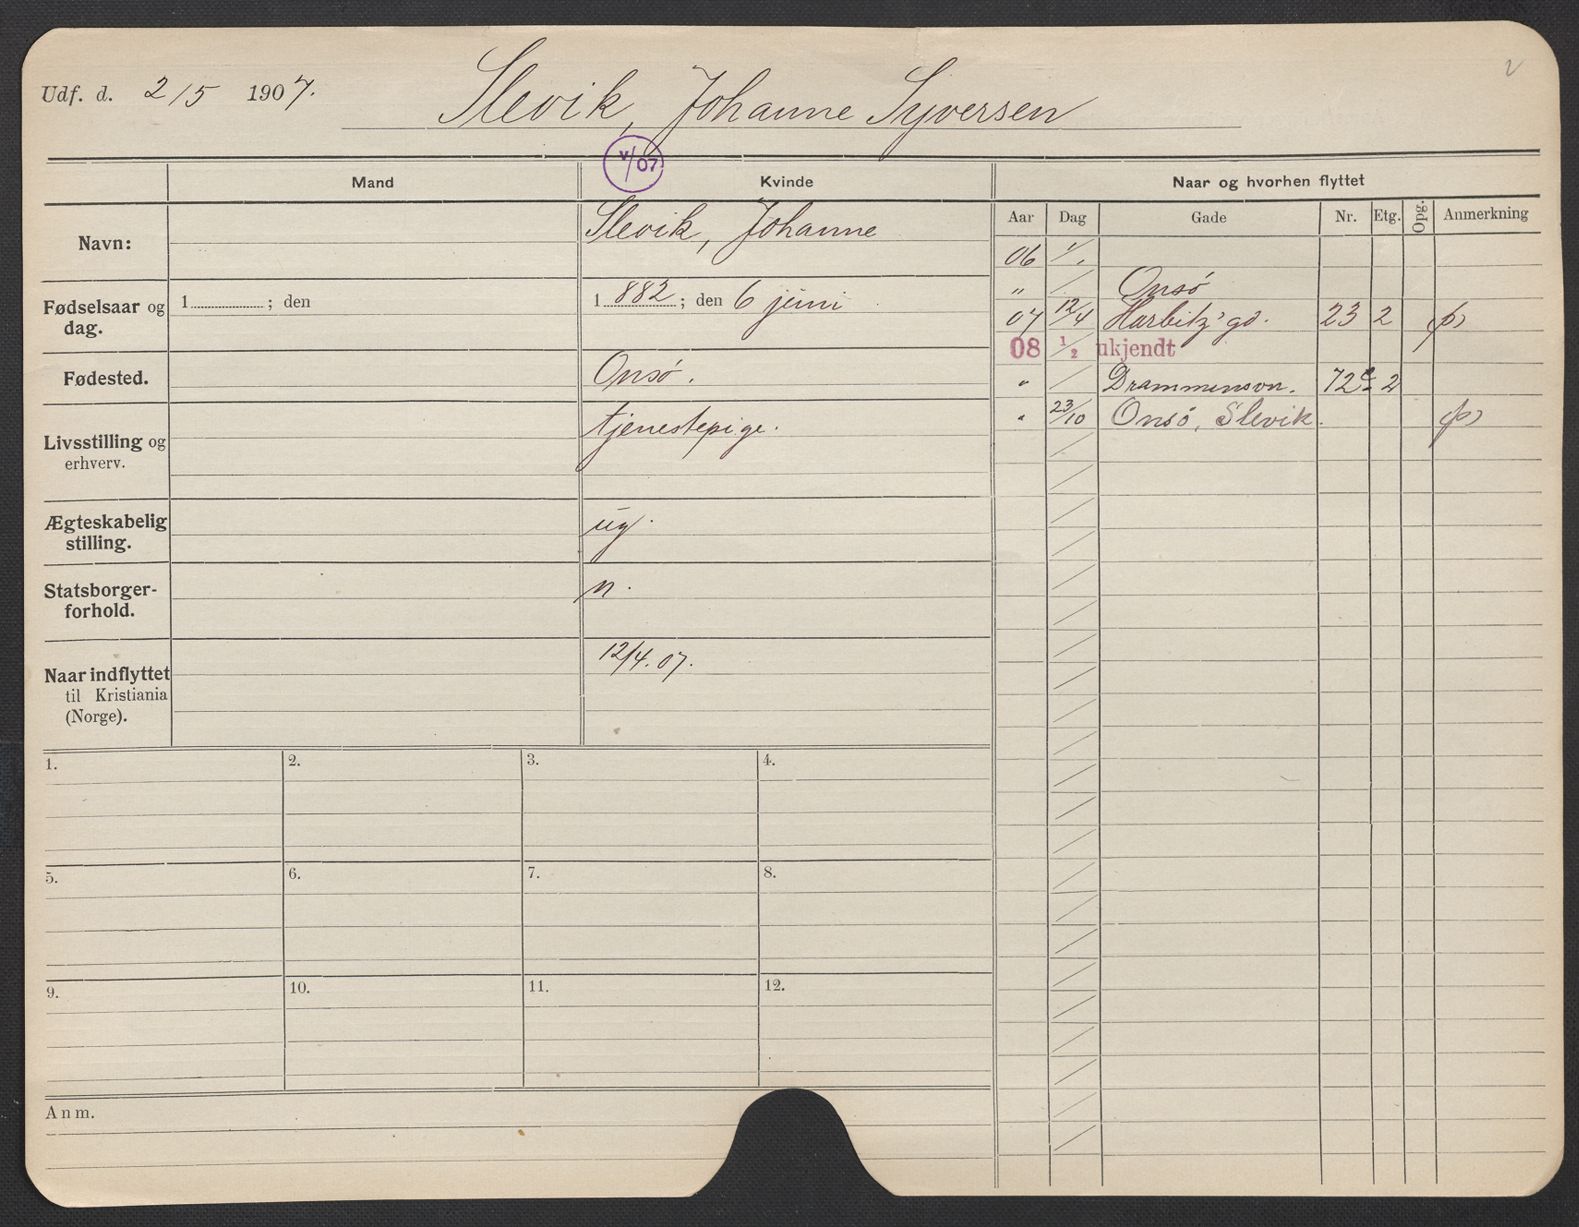 Udf. d. 2/5 1907.
Slevik, Johanne Syversen
v/07
Mand
Kvinde
Naar og hvorhen flyttet
Aar Dag Gade Nr. Etg. Opg. Anmerkning
Navn:
Slevik, Johanne
Fødselsaar og dag.
1 ; den
1 882 ; den 6 juni
Fødested.
Onsö.
Livsstilling og erhverv.
tjenestepige.
Ægteskabelig stilling.
ug.
Statsborger-forhold.
n.
Naar indflyttet til Kristiania (Norge).
12/4.07.
06 1/1
" Onsö
07 12/4 Harbitz' gd. 23 2 (p)
08 1/2 ukjendt
" Drammensvn. 72 c 2
" 23/10 Onsö, Slevik. (p)
1. 2. 3. 4.
5. 6. 7. 8.
9. 10. 11. 12.
Anm.